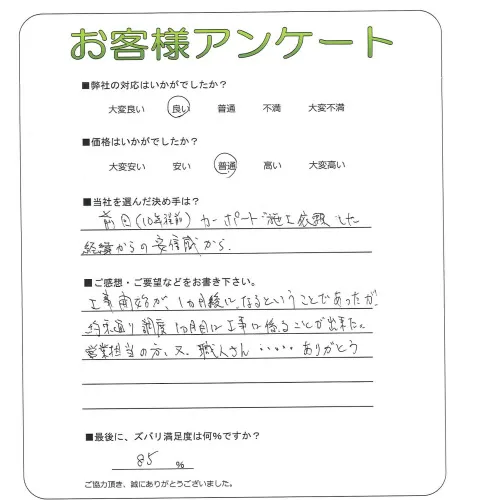 お客様アンケート
■弊社の対応はいかがでしたか？
大変良い 良い 普通 不満 大変不満
■価格はいかがでしたか？
大変安い 安い 普通 高い 大変高い
■当社を選んだ決め手は？
前回(10年程前) カーポート施工依頼した
経験からの安信感から.
■ご感想・ご要望などをお書き下さい。
工事開始が、1ヵ月後になるということであったが、
約束通り調度1ヵ月目に工事に係ることが出来た。
営業担当の方、又、職人さん ‥‥‥ ありがとう
■最後に、ズバリ満足度は何%ですか？
85 %
ご協力頂き、誠にありがとうございました。